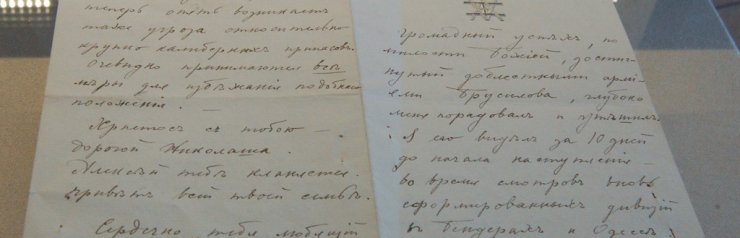 теперь опять возникаетъ
таже угроза относительно
крупно калиберныхъ припасовъ.
Очевидно принимаются всѣ
мѣры для избѣжанія подобнаго
положенія. —
Христосъ съ тобою —
дорогой Николаша.
Алексѣй тебѣ кланяется.
Привѣтъ всей твоей семьѣ.
Сердечно тебя любящій
громадный успѣхъ, по
милости Божіей, достиг-
нутый доблестными армі-
ями Брусилова, глубоко
меня порадовалъ и утѣшилъ.
Я его видѣлъ за 10 дней
до начала наступленія —
во время смотровъ вновь
сформированныхъ дивизій
въ Бендерахъ и Одессѣ